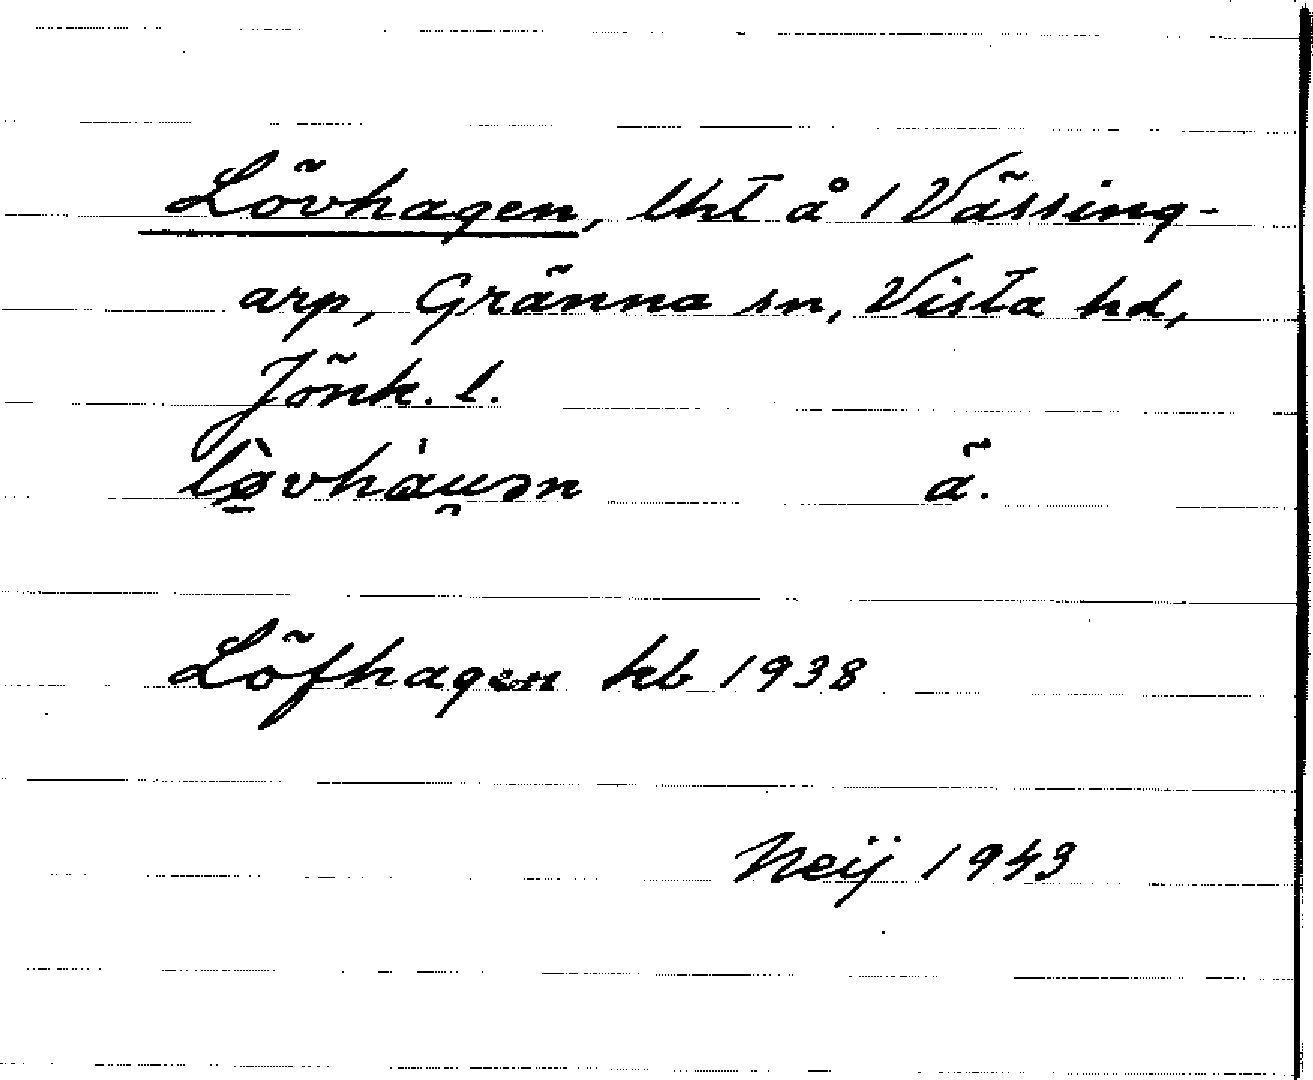 Lövhagen, lht å 1 Vässing-
arp, Gränna sn, Vista hd,
Jönk. l.
ä.
Löfhagen hb 1938
Neij 1943